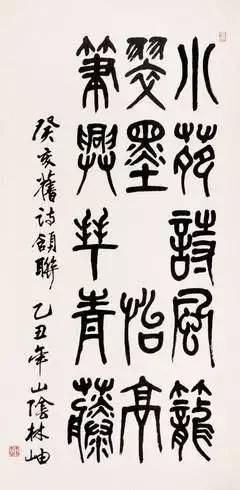 小苑詩風籠
翠墨 怡亭
筆興并青藤
癸亥舊詩頷聯 乙丑年山陰林岫